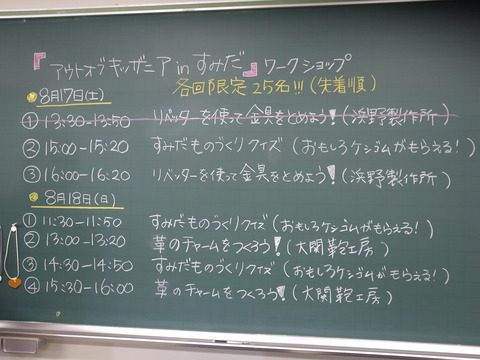 『アウトオブキッザニア in すみだ』ワークショップ
各回限定25名!!!(先着順)
8月17日(土)
① 13:30-13:50 リベッターを使って金具をとめよう!(浜野製作所)
② 15:00-15:20 すみだものづくりクイズ(おもしろケシゴムがもらえる!)
③ 16:00-16:20 リベッターを使って金具をとめよう!(浜野製作所)
8月18日(日)
① 11:30-11:50 すみだものづくりクイズ(おもしろケシゴムがもらえる!)
② 13:00-13:20 革のチャームをつくろう!(大関鞄工房)
③ 14:30-14:50 すみだものづくりクイズ(おもしろケシゴムがもらえる!)
④ 15:30-16:00 革のチャームをつくろう!(大関鞄工房)